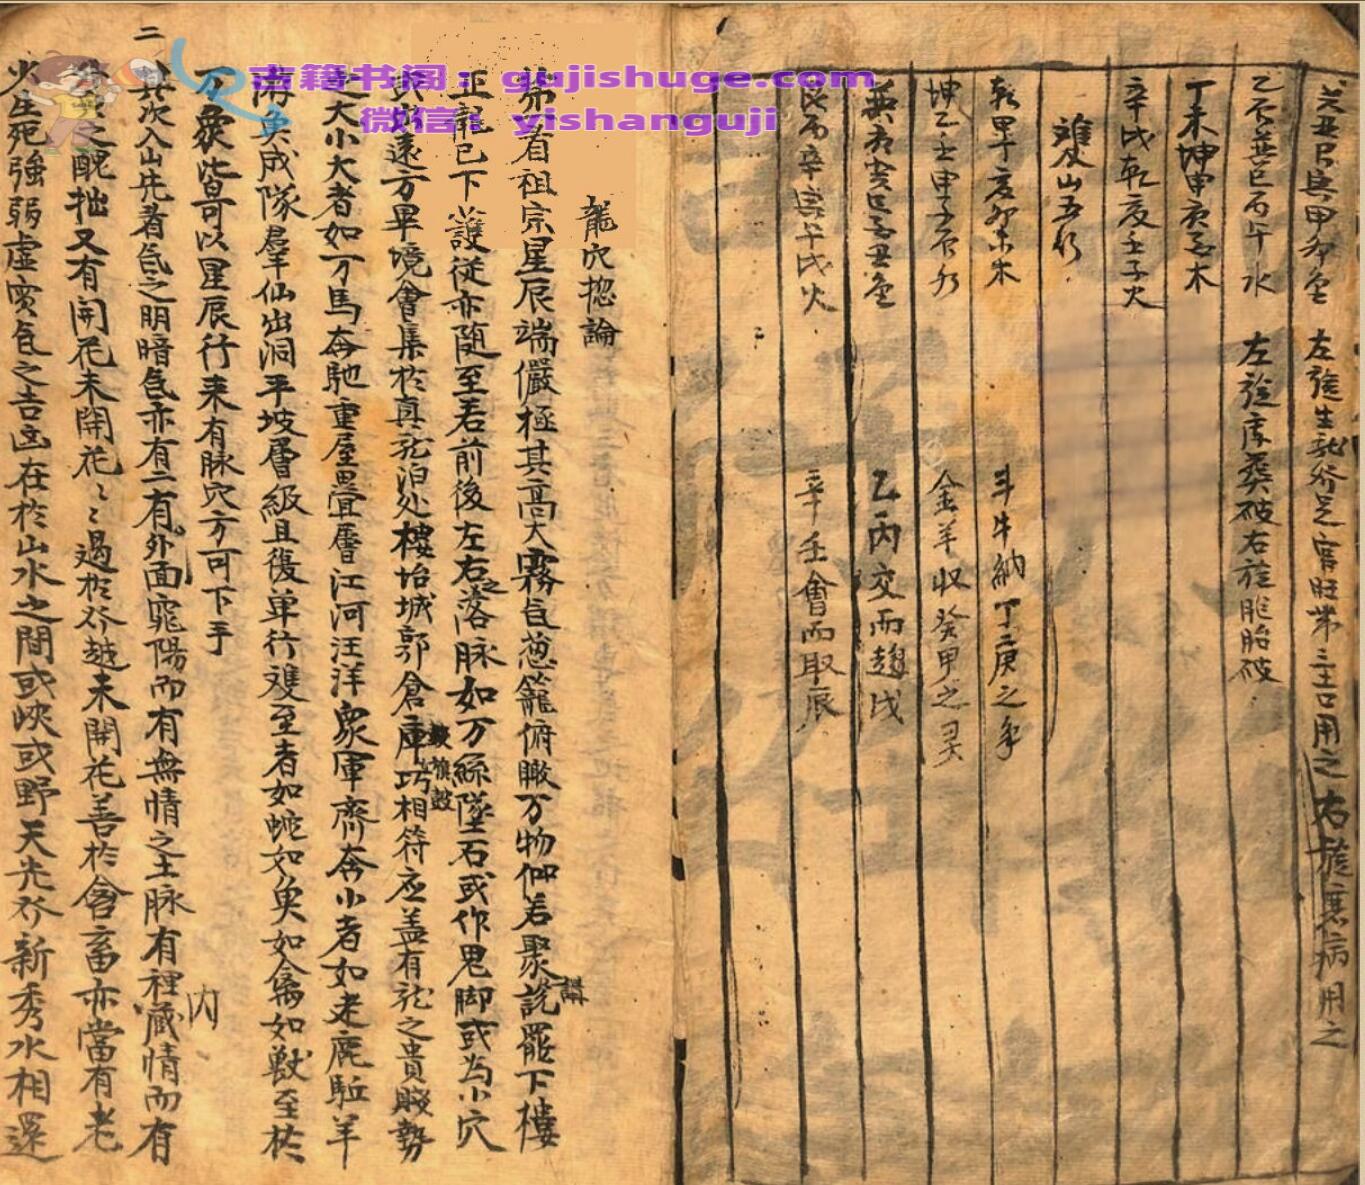 癸丑艮與甲卯金 左旋生龍斧足官旺第三吉用之右旋應病用之
乙丙巽巳丙午水 左旋庫葵破右旋胞胎破
丁未坤申庚玄木
辛戌乾亥壬子火
雙山五行
乾甲丁亥卯未木 斗牛納丁庚之氣
坤乙壬申子辰水 金羊收癸甲之灵
巽庚癸巳酉丑金 乙丙交而趨戌
艮丙辛寅午戌火 辛壬會而聚辰
龍穴揔論
苐看祖宗星辰端儼極其高大霧气葱籠俯瞰万物仰若聚說罷下樓
講
正龍已下護從亦隨至若前後左右之落脉如万絲墜石或作鬼脚或为小穴
遠方畢境會集於真龙泊处樓抬城郭倉庫巧相符应盖有龙之貴賤勢
旗鼓
大小大者如万馬奔馳重屋疊層江河汪洋眾軍齊奔小者如走鹿駈羊
成隊羣仙出洞平坡層級且復单行双至者如蛇如臾如禽如獸至於
万象皆可以星辰行来有脉穴方可下手
其次入山先看气之明暗气亦有二有外面窕陽而有無情之土脉有裡藏情而有
内
之醜拙又有開花未開花〻過於斧越未開花善於含畜亦當有老
少生死強弱虚實气之吉凶在於山水之間或峡或野天光斧新秀水相還
二
古籍书阁：gujishuge.com
微信：yishanguji